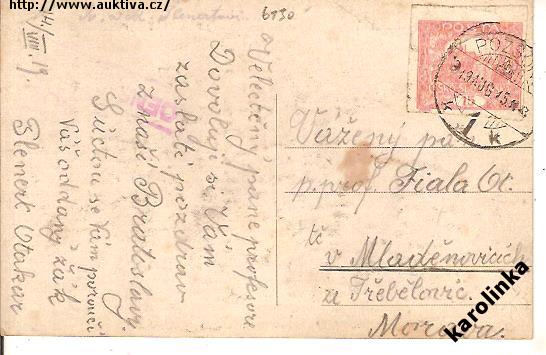 www.auktiva.cz/
14/VIII. 19
6130
Velectěný pane profesore
Dovoluji si Vám
zaslati pozdrav
z naší Bratislavy
S úctou se Vám poroučí
Váš oddaný žák
Slenert Otakar
POZSONY
919 AUG 15
k
Vážený pan
p. prof. Fiala Ot.
tč
v Mladěnovicích
u Třebělovic.
Morava.
karolinka